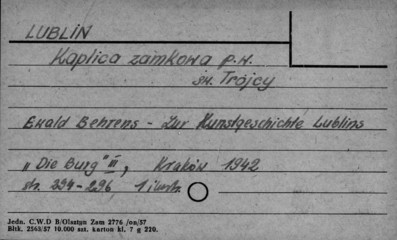 LUBLIN
Kaplica zamkowa p.w.
św. Trójcy
Ewald Behrens - Zur Kunstgeschichte Lublins
„Die Burg" III, Kraków 1942
str. 294-296 1 ilustr.
Jedn. C.W.D B/Olsztyn Zam 2776 /on/57
Bltk. 2563/57 10.000 szt. karton kl. 7 g 220.